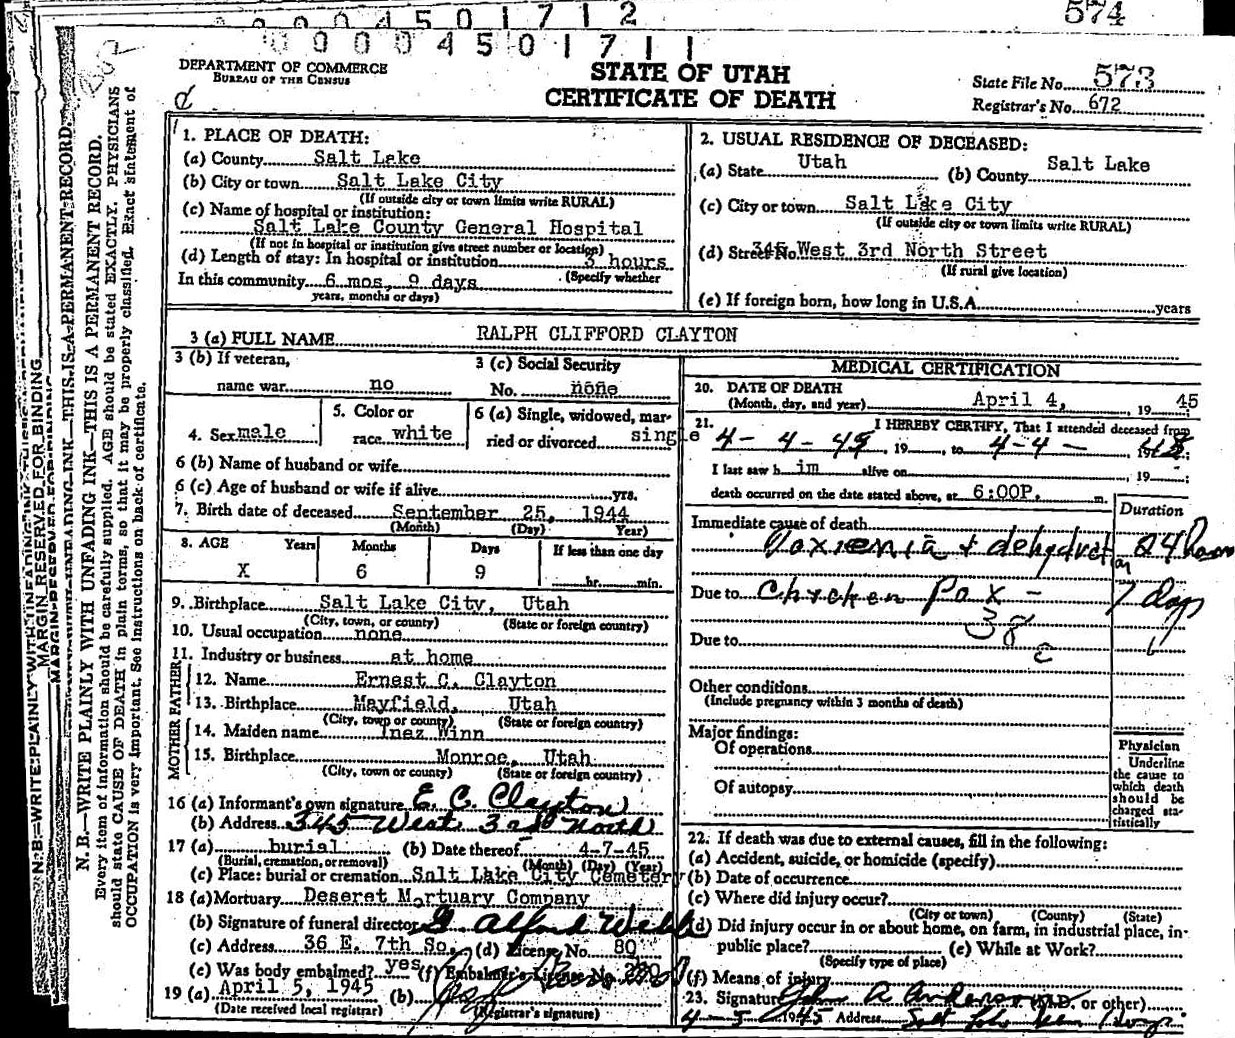 0 0 0 0 4 5 0 1 7 1 2
574
0 0 0 0 4 5 0 1 7 1 1
DEPARTMENT OF COMMERCE
BUREAU OF THE CENSUS
STATE OF UTAH
CERTIFICATE OF DEATH
State File No. 573
Registrar's No. 672
N. B.—WRITE PLAINLY WITH UNFADING INK—THIS IS A PERMANENT RECORD.
Every item of information should be carefully supplied. AGE should be stated EXACTLY. PHYSICIANS
should state CAUSE OF DEATH in plain terms, so that it may be properly classified. Exact statement of
OCCUPATION is very important. See instructions on back of certificate.
MARGIN RESERVED FOR BINDING
1. PLACE OF DEATH:
(a) County Salt Lake
(b) City or town Salt Lake City
(If outside city or town limits write RURAL)
(c) Name of hospital or institution:
Salt Lake County General Hospital
(If not in hospital or institution give street number or location)
(d) Length of stay: In hospital or institution 3 hours
(Specify whether
In this community 6 mos, 9 days
years, months or days)
2. USUAL RESIDENCE OF DECEASED:
(a) State Utah (b) County Salt Lake
(c) City or town Salt Lake City
(If outside city or town limits write RURAL)
(d) Street No. 345 West 3rd North Street
(If rural give location)
(e) If foreign born, how long in U.S.A. years
3 (a) FULL NAME RALPH CLIFFORD CLAYTON
3 (b) If veteran,
name war no
3 (c) Social Security
No. none
4. Sex male
5. Color or
race white
6 (a) Single, widowed, mar-
ried or divorced single
6 (b) Name of husband or wife
6 (c) Age of husband or wife if alive yrs.
7. Birth date of deceased September 25, 1944
(Month) (Day) Year)
8. AGE Years Months Days If less than one day
X 6 9 hr. min.
9. Birthplace Salt Lake City, Utah
(City, town, or county) (State or foreign country)
10. Usual occupation none
11. Industry or business at home
FATHER
12. Name Ernest C. Clayton
13. Birthplace Mayfield, Utah
(City, town or county) (State or foreign country)
MOTHER
14. Maiden name Inez Winn
15. Birthplace Monroe, Utah
(City, town or county) (State or foreign country)
16 (a) Informant's own signature E. C. Clayton
(b) Address 345 West 3rd North
17 (a) burial (b) Date thereof 4-7-45
(Burial, cremation, or removal) (Month) (Day) (Year)
(c) Place: burial or cremation Salt Lake City Cemetery
18 (a) Mortuary Deseret Mortuary Company
(b) Signature of funeral director Alford Webb
(c) Address 36 E. 7th So. (d) License No. 80
(e) Was body embalmed? yes (f) Embalmer's License No.
19 (a) April 5, 1945 (b)
(Date received local registrar) (Registrar's signature)
MEDICAL CERTIFICATION
20. DATE OF DEATH
(Month, day, and year) April 4, , 19 45
21. I HEREBY CERTIFY, That I attended deceased from
4-4-45, 19 , to 4-4- 19 45;
I last saw h im alive on , 19 ;
death occurred on the date stated above, at 6:00P. m.
Duration
Immediate cause of death
Toxemia & dehydration 24 hours
Due to Chicken Pox - 7 days
38
e
Due to
Other conditions
(Include pregnancy within 3 months of death)
Major findings:
Of operations
Of autopsy
Physician
Underline
the cause to
which death
should be
charged sta-
tistically
22. If death was due to external causes, fill in the following:
(a) Accident, suicide, or homicide (specify)
(b) Date of occurrence
(c) Where did injury occur?
(City or town) (County) (State)
(d) Did injury occur in or about home, on farm, in industrial place, in-
public place? (e) While at Work?
(Specify type of place)
(f) Means of injury
23. Signature John R. Anderson (M.D. or other)
4-5-1945 Address Salt Lake Gen Hosp